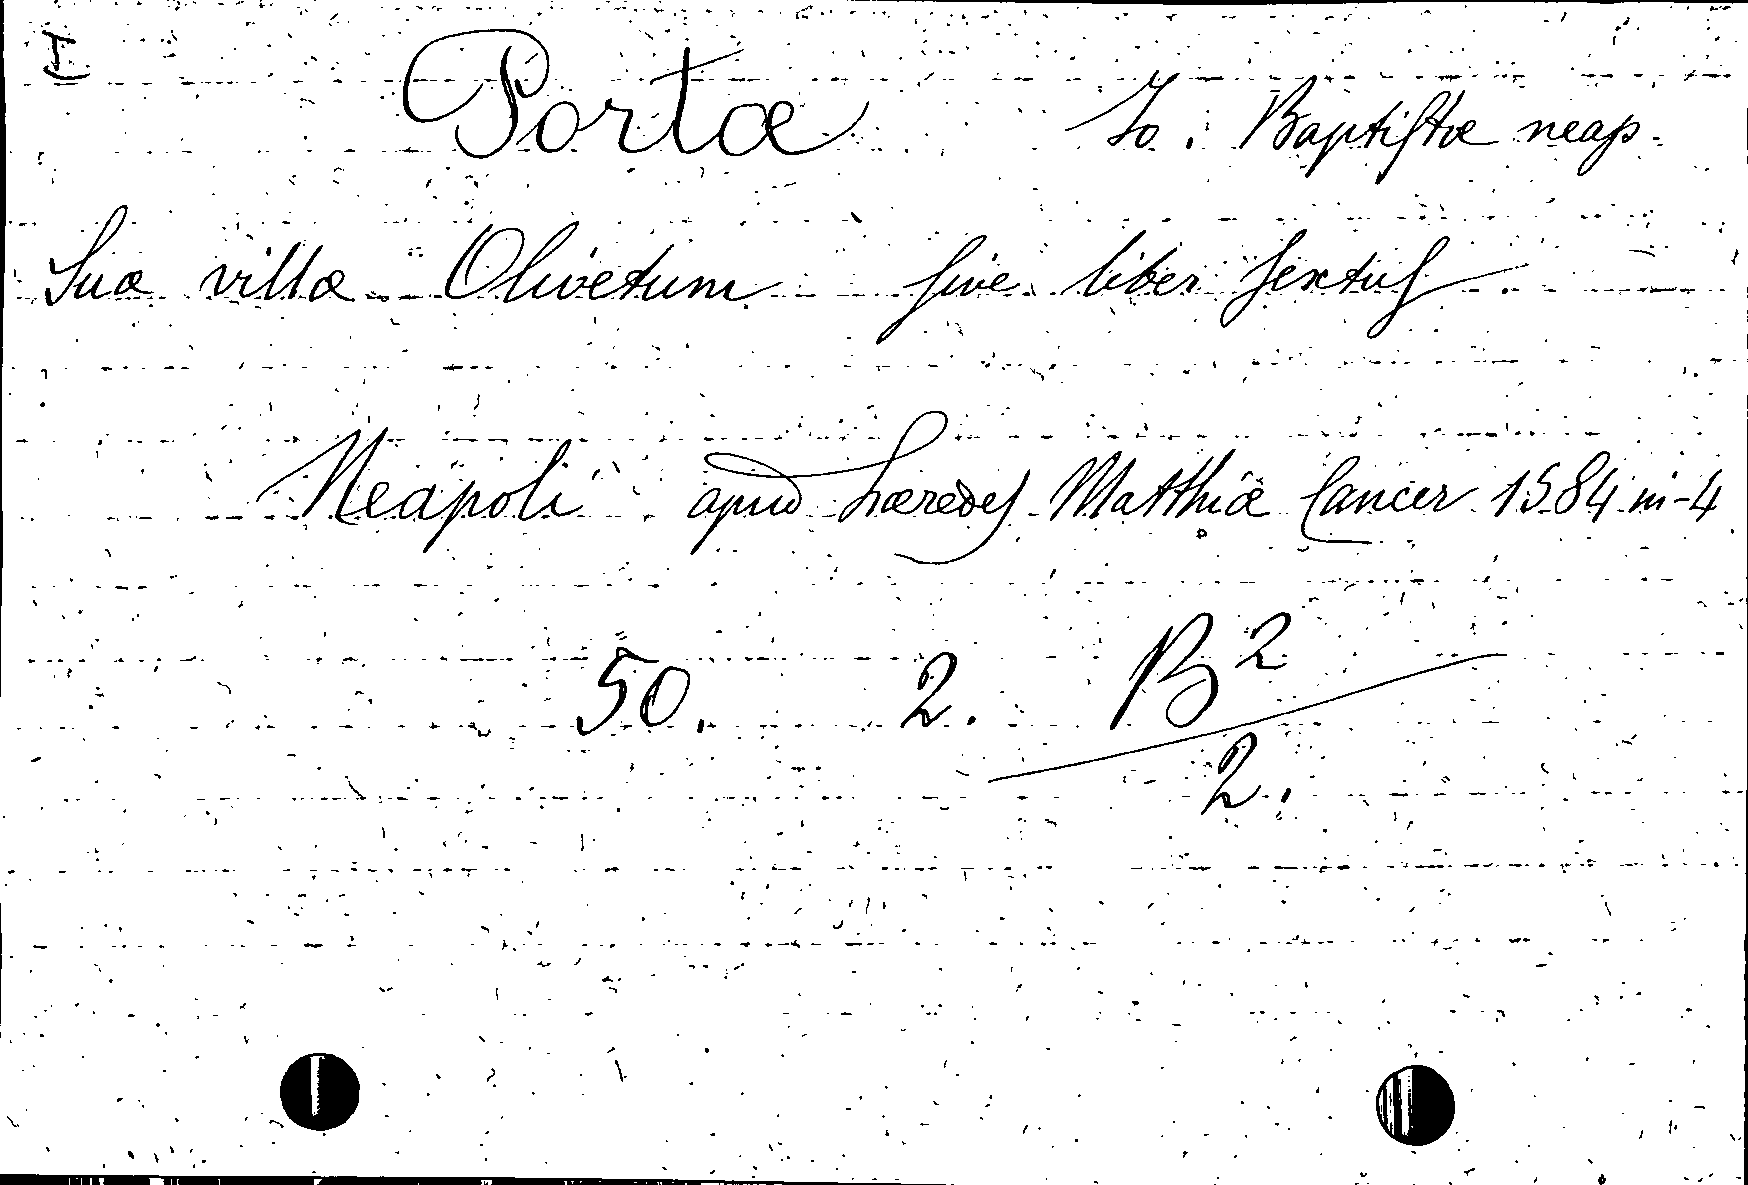 I
Portæ Io. Baptistæ neap.
Suæ villæ Olivetum sive liber sextus
Neapoli apud hæredes Matthiæ Cancer 1584 in-4
50. 2. B²
2.